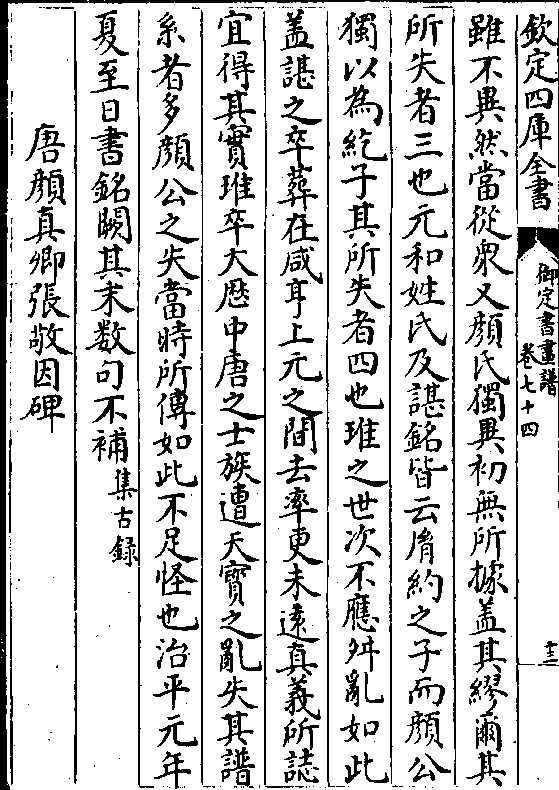 欽定四庫全書
御定書畫譜
卷七十四
十三
雖不異然當從衆又顔氏獨異初無所據盖其繆爾其
所失者三也元和姓氏及諶銘皆云胤約之子而顔公
獨以為紇子其所失者四也琟之世次不應舛亂如此
盖諶之卒葬在咸亨上元之間去率更未逺真義所誌
宜得其實琟卒大歴中唐之士族遭天寳之亂失其譜
系者多顔公之失當時所傳如此不足怪也治平元年
夏至日書銘闕其末数句不補集古録
唐顔真卿張敬因碑